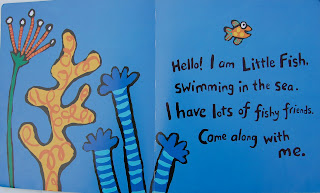 Hello! I am Little Fish,
swimming in the sea.
I have lots of fishy friends.
Come along with
me.